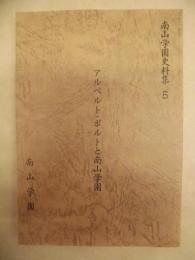 南山学園史料集 5
アルベルト・ボルトと南山学園
南山学園